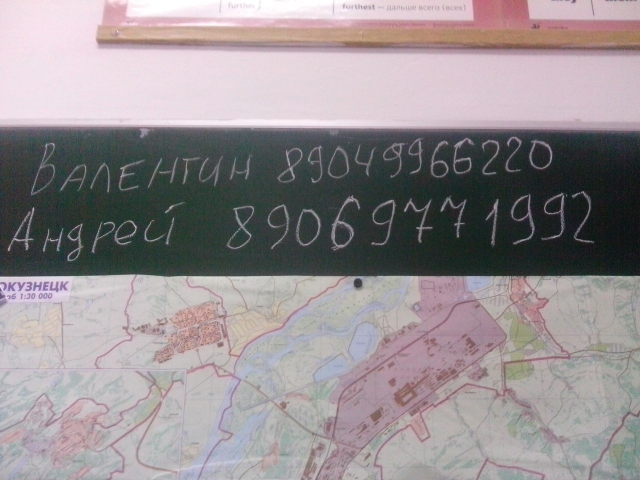 further
furthest — дальше всего (всех)
Валентин 89049966220
Андрей 89069771992
ОКУЗНЕЦК
1:30 000